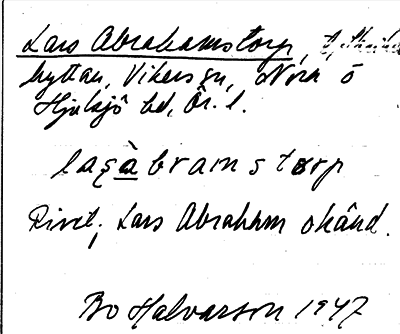 Lars Abrahamstorp,
hyttan, Vikers sn, Nora o
Hjulsjö bd, Ör. l.
lasàbramstorp
Rivet; Lars Abraham okänd.
Bo Halvarson 1947